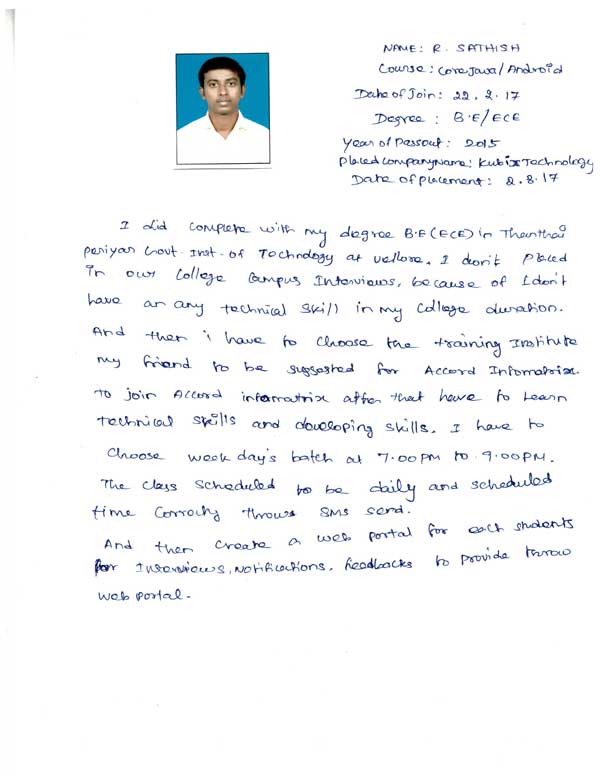 NAME: R. SATHISH
Course: Core Java/Android
Date of Join: 22.2.17
Degree: B.E/ECE
Year of Passout: 2015
Placed Company Name: Kubix Technology
Date of placement: 2.8.17
I did complete with my degree B.E(ECE) in Thanthai
periyar Govt. Inst. of Technology at vellore. I don't placed
in our College Campus Interviews, because of I don't
have an any technical skill in my College duration.
And then i have to choose the training Institute
my friend to be suggested for Accord Infomatrix.
To join Accord infomatrix after that have to Learn
technical skills and developing skills. I have to
choose week day's batch at 7.00PM to 9.00PM.
The class scheduled to be daily and scheduled
time correctly throws SMS send.
And then create a web portal for each students
for Interviews, Notifications, feedbacks to provide throw
web portal.